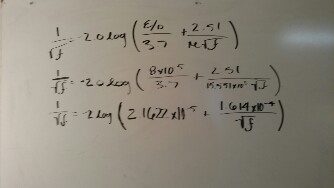 1/√f = -2.0 log ( ε/D / 3.7 + 2.51 / Re √f )
1/√f = -2.0 log ( 8x10⁻⁵ / 3.7 + 2.51 / 15.551x10³ √f )
1/√f = -2 log ( 2.1622 x10⁻⁵ + 1.614x10⁻⁴ / √f )